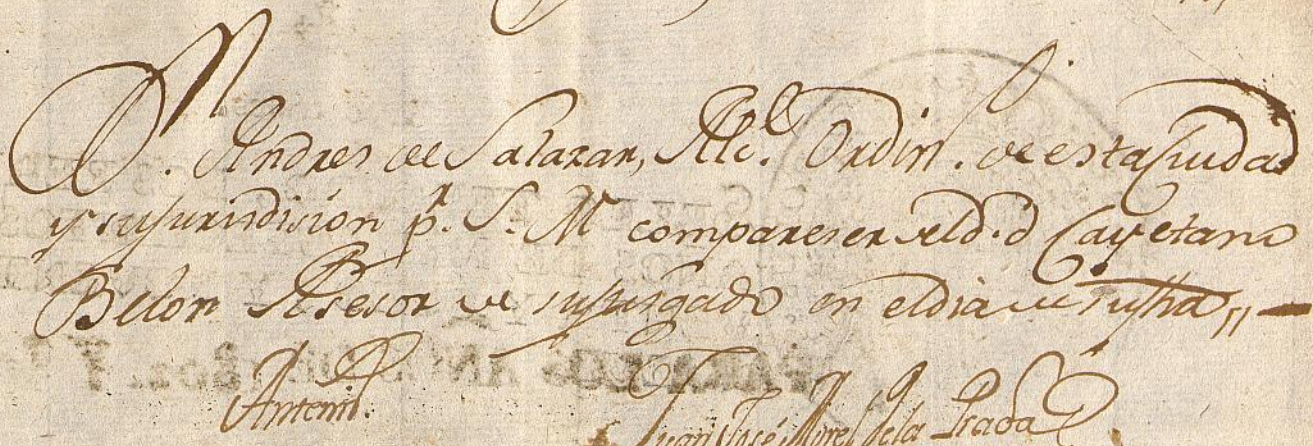 D. Andres de Salazar, Alc.e Ordin.o de esta Ciudad
y su juridision p.r S. M compareser del D.r d Cayetano
Belon Asesor de su jusgado en el dia de su fha,,
Antemi.
Juan José Mrel de la Prada